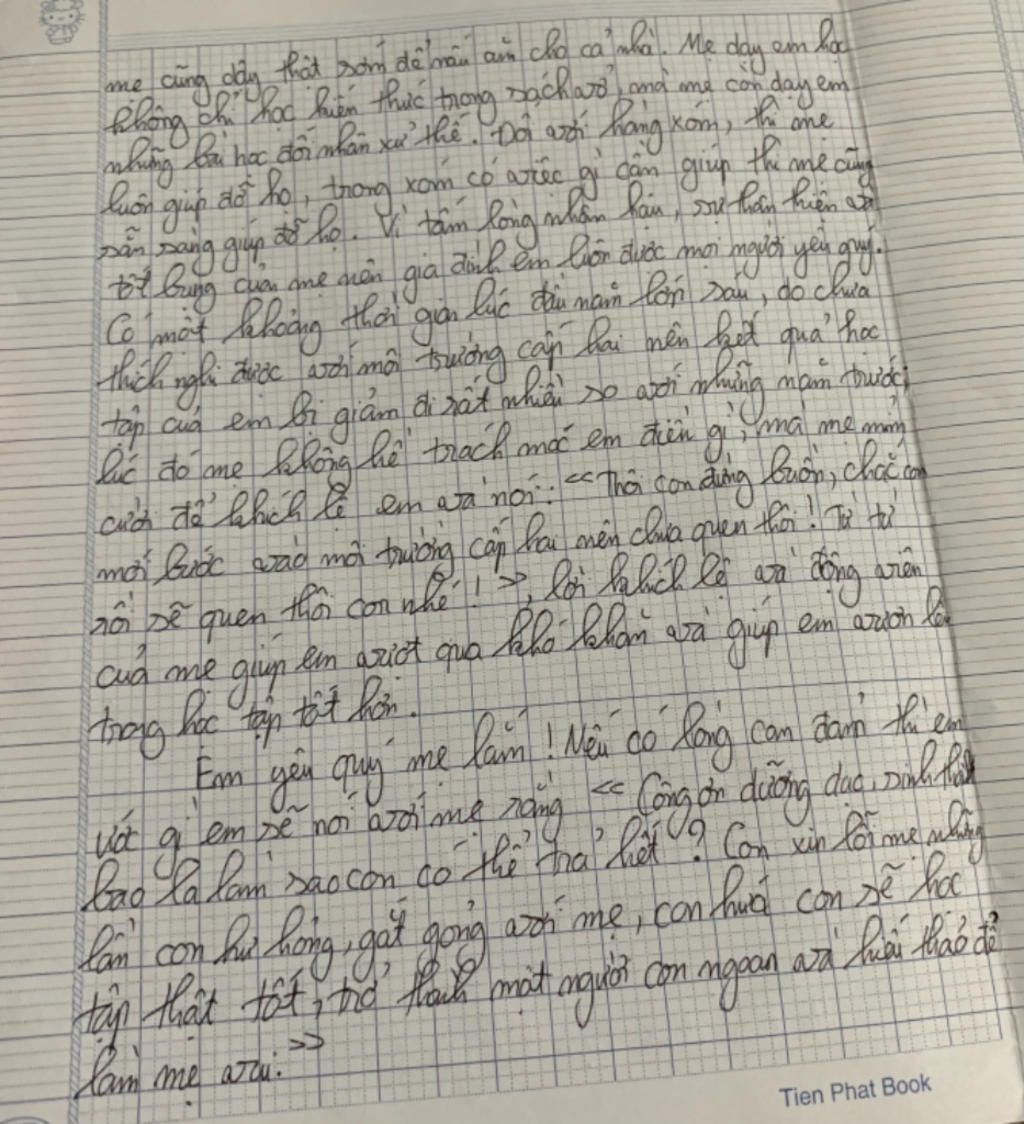 mẹ cũng dậy thật sớm để nấu ăn cho cả nhà. Mẹ dạy em học
không chỉ học kiến thức trong sách vở, mà mẹ còn dạy em
những bài học đối nhân xử thế. Đối với hàng xóm, thì mẹ
luôn giúp đỡ họ, trong xóm có việc gì cần giúp thì mẹ cũng
sẵn sàng giúp đỡ họ. Vì tấm lòng nhân hậu, sự thân thiện và
tốt bụng của mẹ nên gia đình em luôn được mọi người yêu quý.
Có một khoảng thời gian lúc đầu năm lớp sáu, do chưa
thích nghi được với môi trường cấp hai nên kết quả học
tập của em bị giảm đi rất nhiều so với những năm trước,
lúc đó mẹ không hề trách móc em điều gì, mà mẹ mỉm
cười để khích lệ em và nói: << Thôi con đừng buồn, chắc con
mới bước vào môi trường cấp hai nên chưa quen thôi! Từ từ
rồi sẽ quen thôi con nhé! >>, lời khích lệ và động viên
của mẹ giúp em vượt qua khó khăn và giúp em vươn lên
trong học tập tốt hơn.
Em yêu quý mẹ lắm! Nếu có lòng can đảm thì em
ước gì em sẽ nói với mẹ rằng << Công ơn dưỡng dục, sinh thành
bao la làm sao con có thể trả hết? Con xin lỗi mẹ những
lần con hư hỏng, gắt gỏng với mẹ, con hứa con sẽ học
tập thật tốt, trở thành một người con ngoan và hiếu thảo để
làm mẹ vui. >>
Tien Phat Book